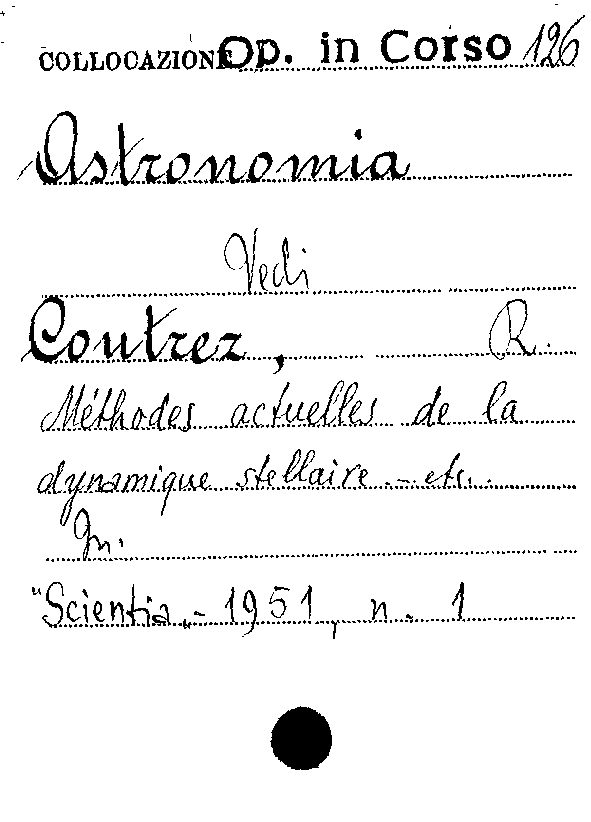 COLLOCAZIONE Op. in Corso 126
Astronomia
Vedi
Coutrez, R.
Méthodes actuelles de la
dynamique stellaire - etc.
In.
"Scientia„ - 1951, n. 1